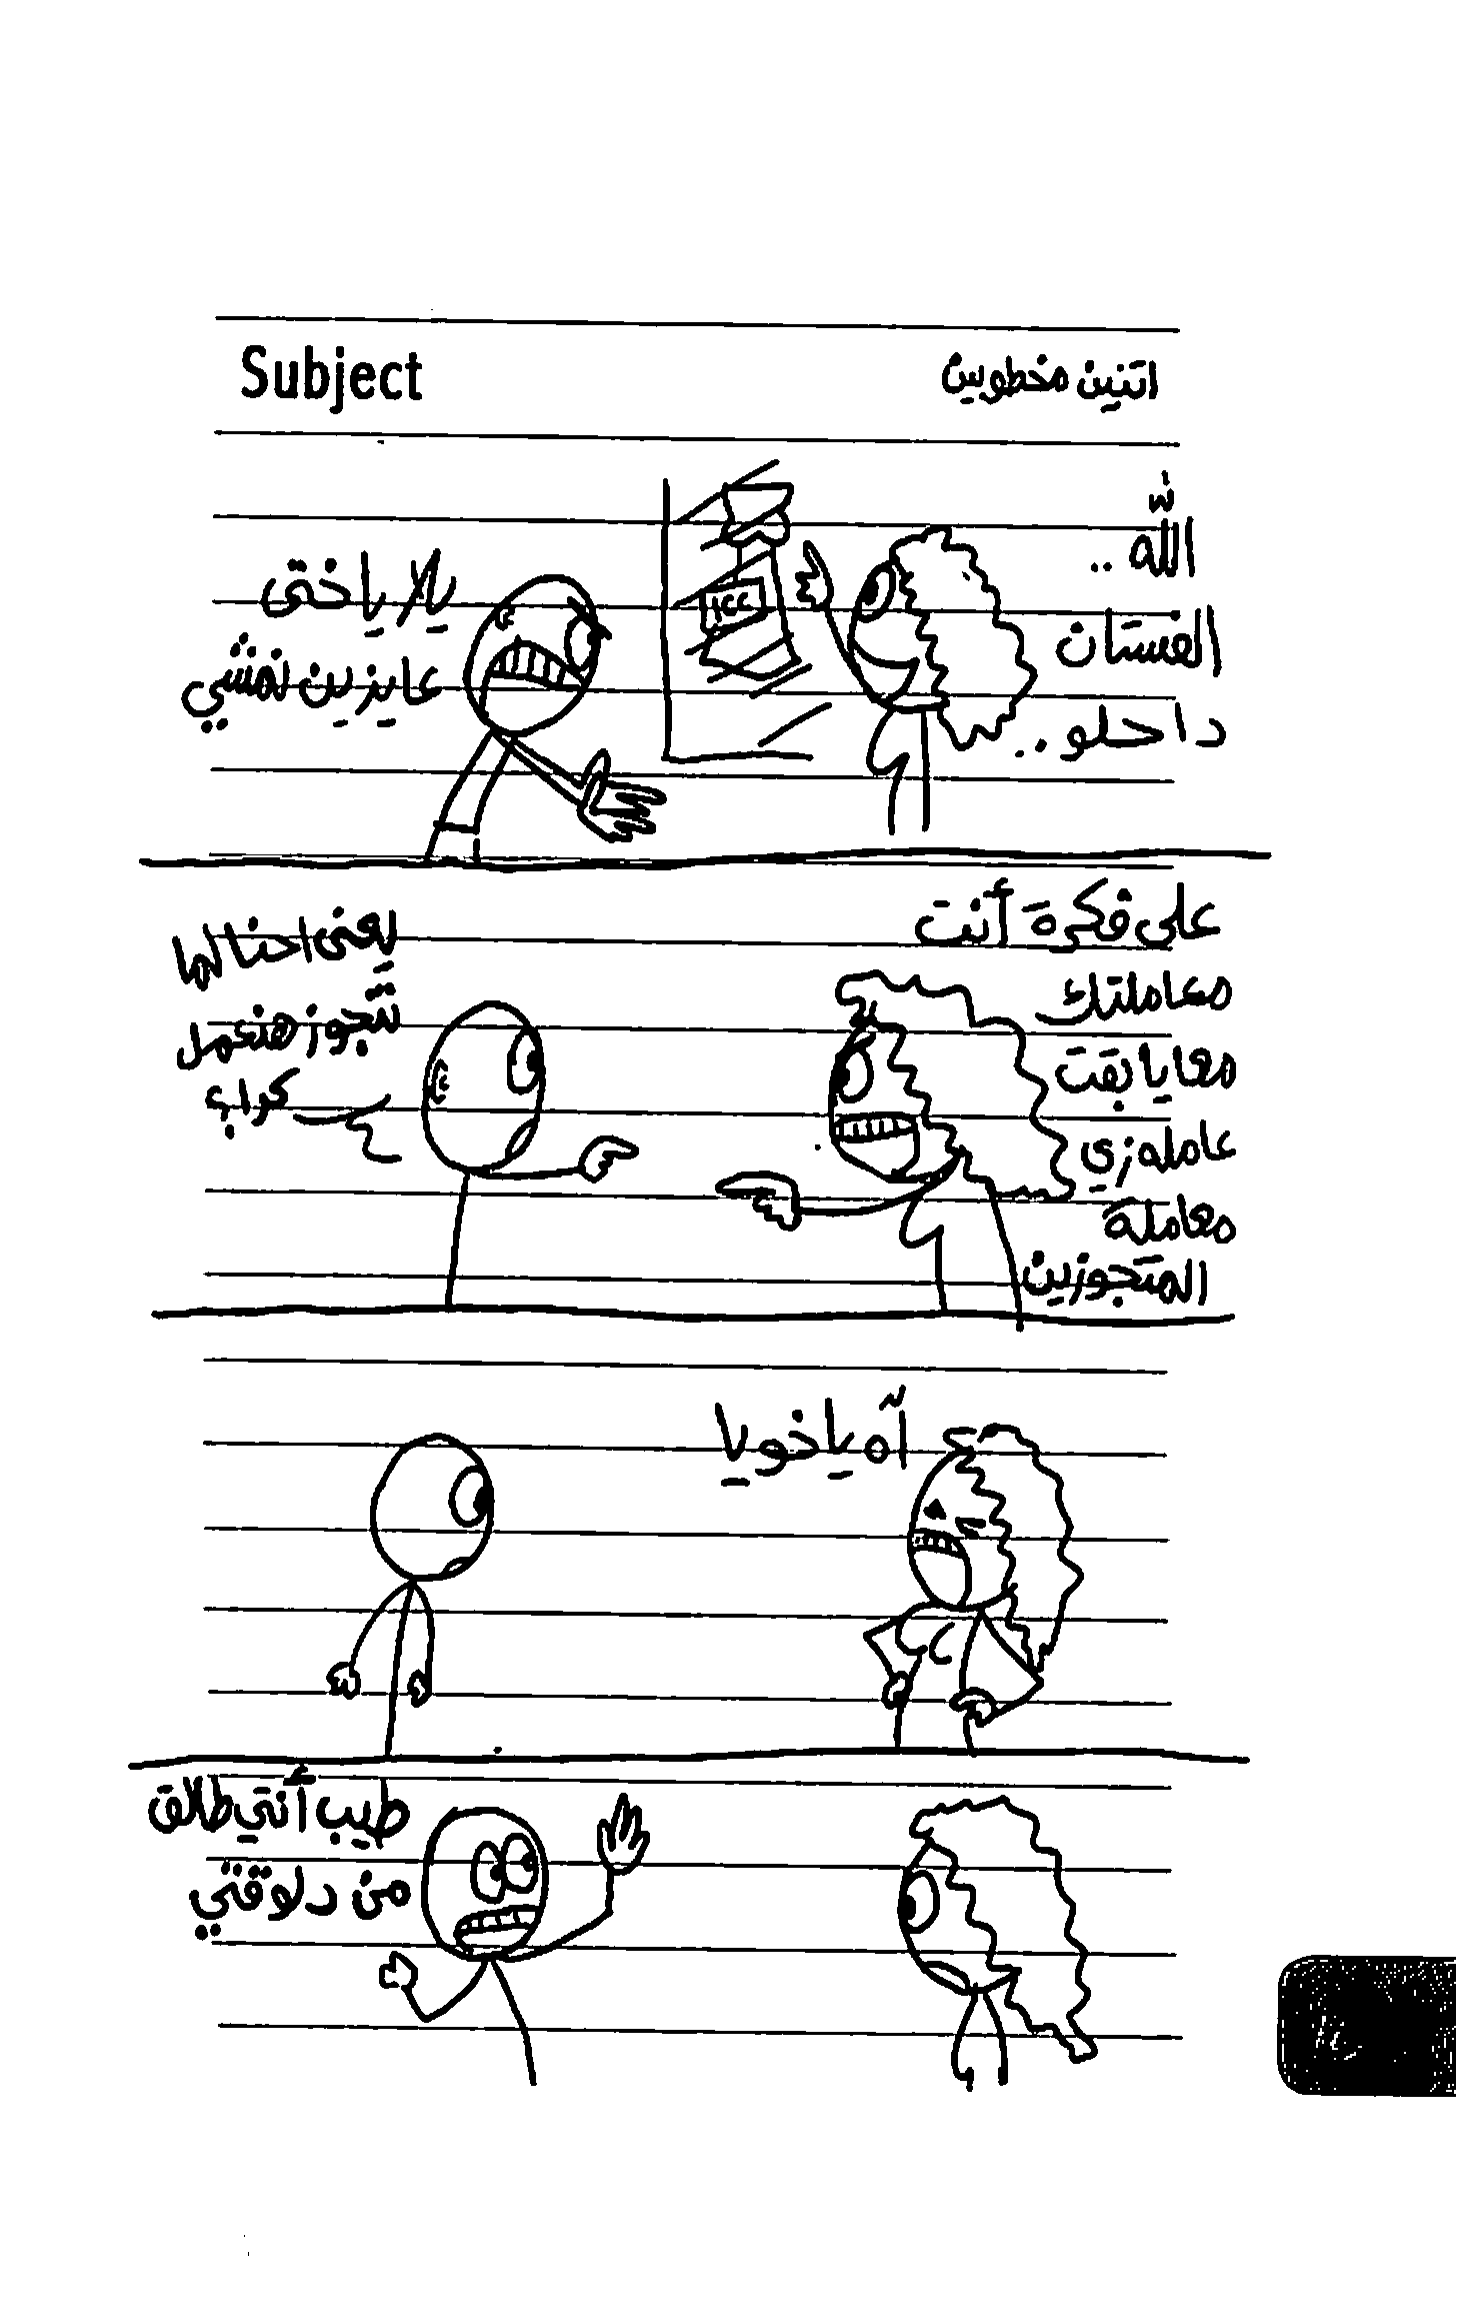 Subject
اتنين مخطوبين
الله..
الفستان
دا حلو..
يلا يا ختى
عايزين نمشي
١٢٢
على فكرة أنت
معاملتك
معايا بقت
عامله زي
معاملة
المتجوزين
يعنى احنا لما
نتجوز هنعمل
كدا؟
آه ياخويا
طيب أنتي طالق
من دلوقتي